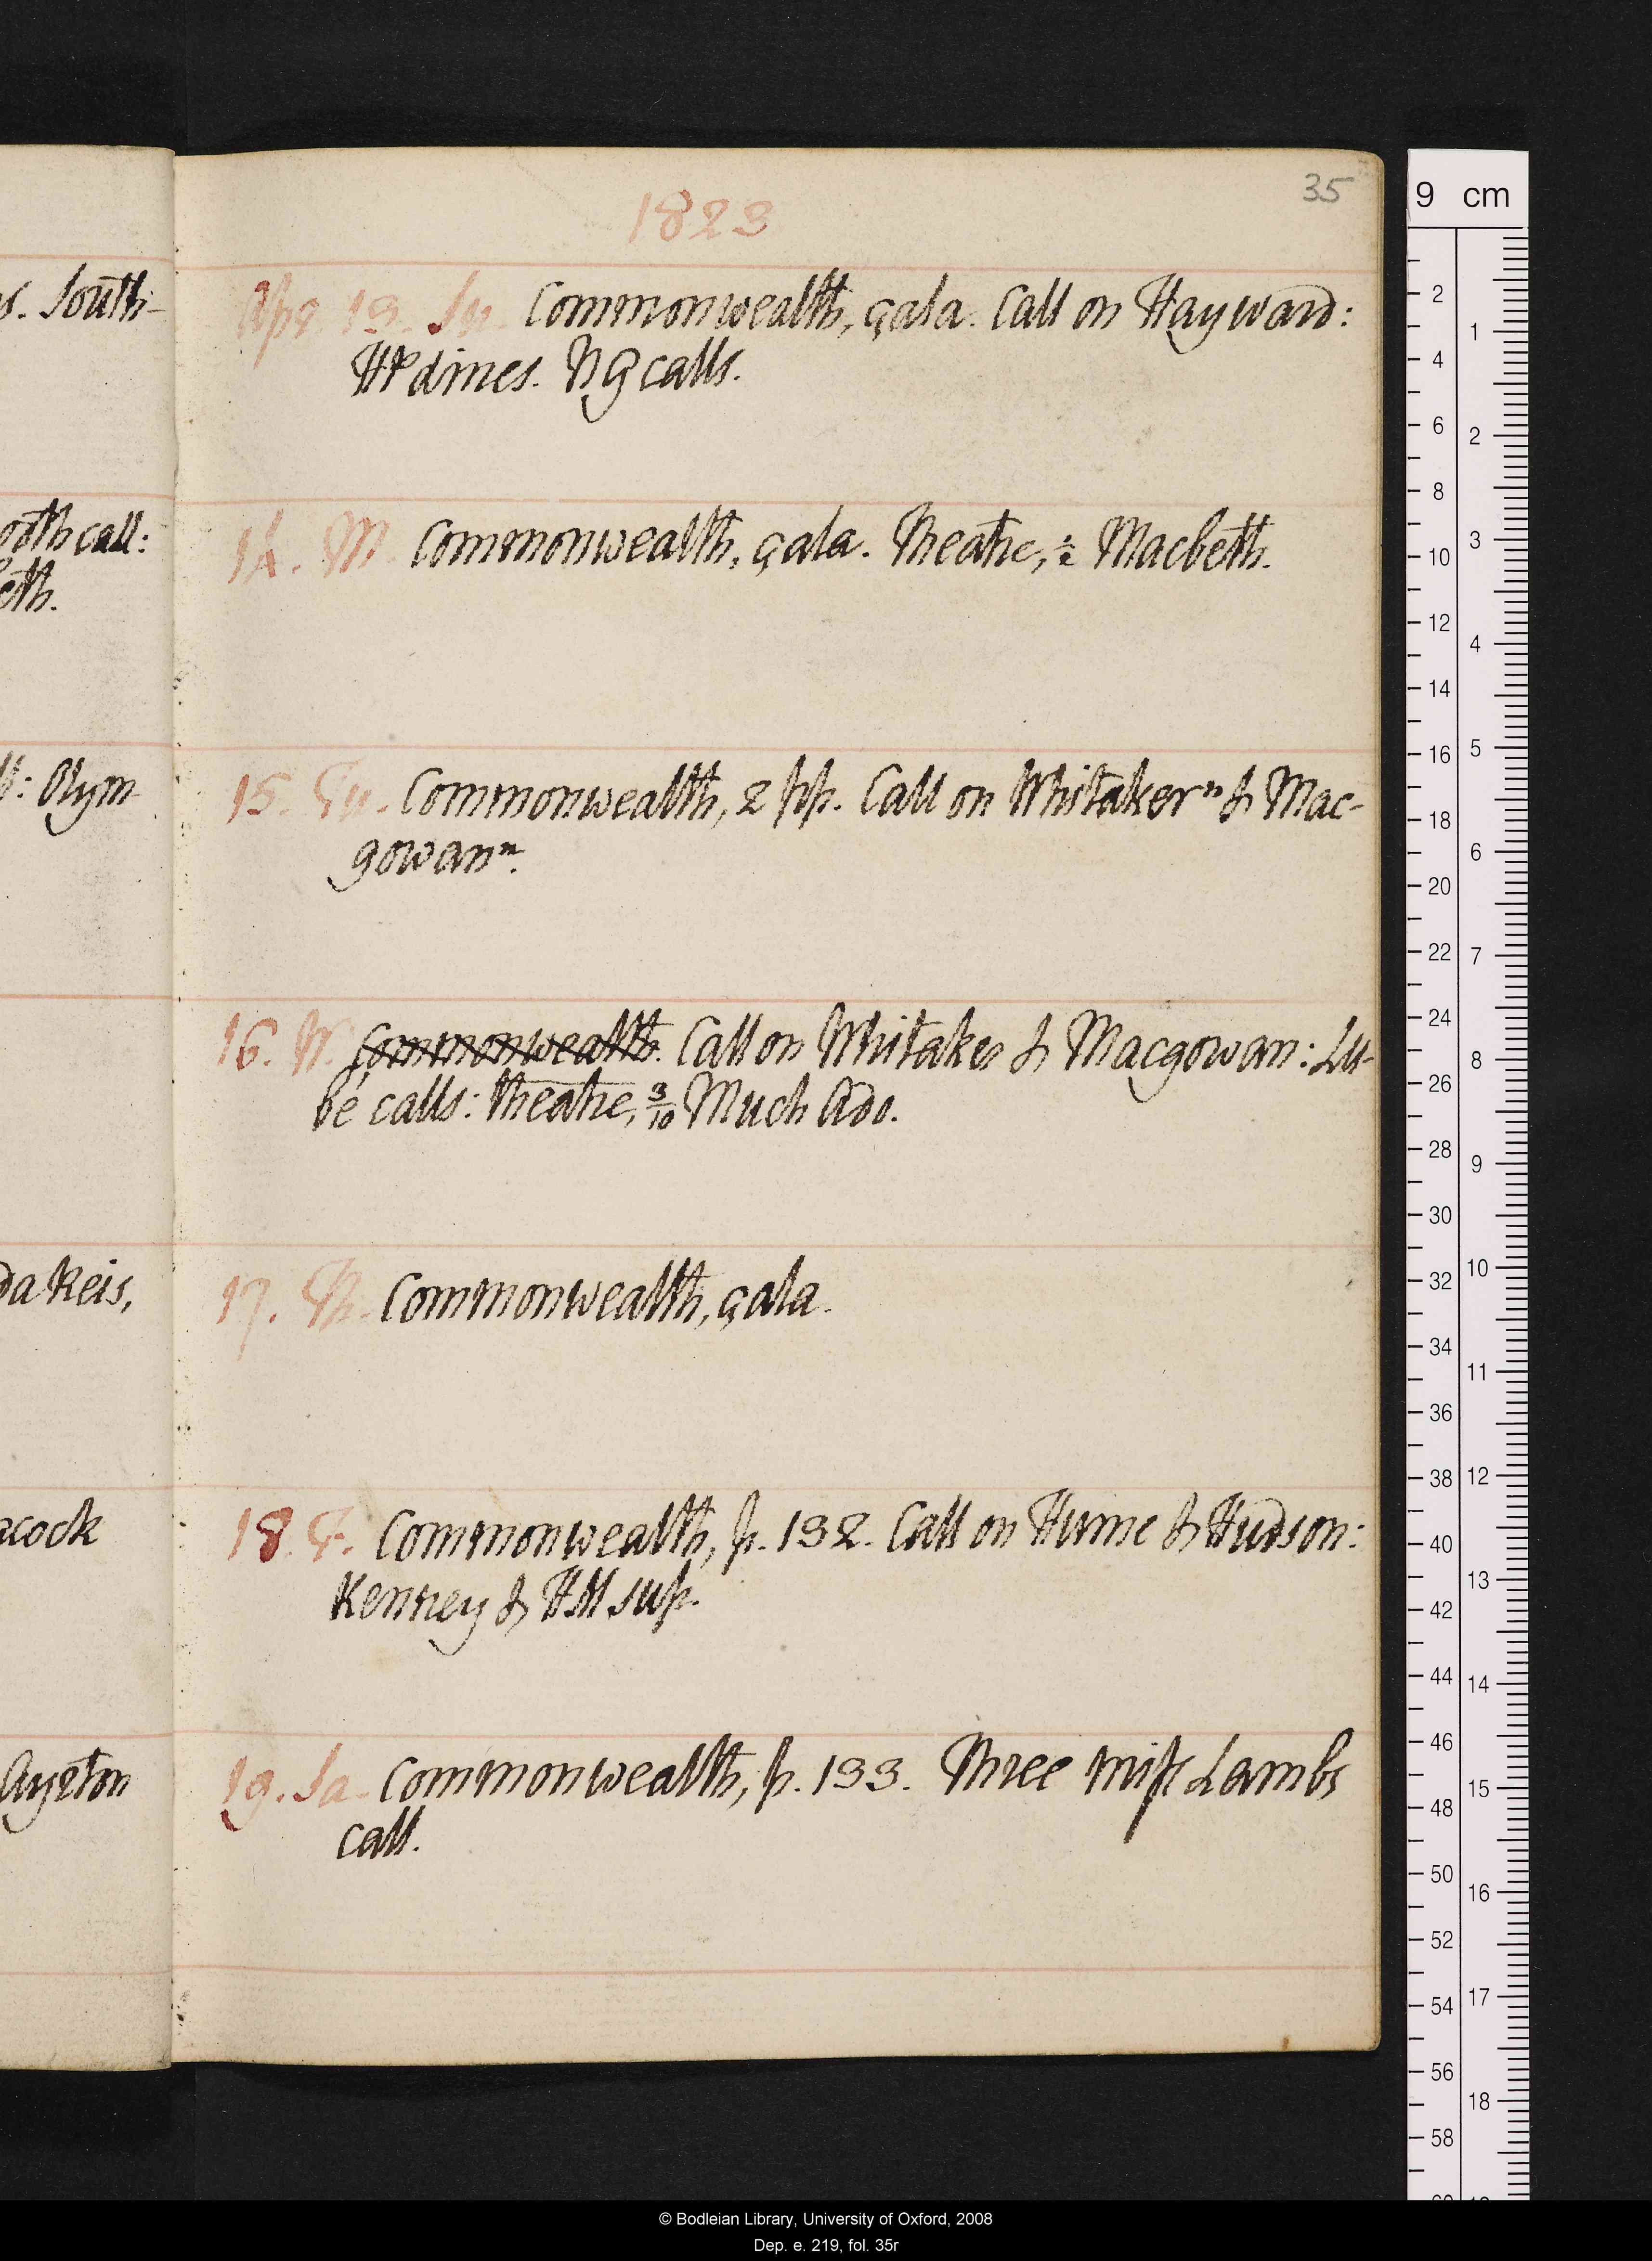 35
1823
s. South-
Apr. 13. Su. Commonwealth, çala. Call on Hayward:
HP dines. NG calls.
oth call:
eth.
14. M. Commonwealth, çala. Theatre, ½ Macbeth.
l: Olym-
15. Tu. Commonwealth, 2 pp. Call on Whitaker ⁿ & Mac-
gowan ⁿ.
16. W. Commonwealth. Call on Whitaker & Macgowan: Lu-
bé calls: theatre, 3/10 Much Ado.
da Reis,
17. Th. Commonwealth, çala.
acock
18. F. Commonwealth, p. 132. Call on Hume & Hudson:
Kenney & HM sup.
Ayrton
19. Sa. Commonwealth, p. 133. Three miss Lambs
call.
9 cm
2
4
6
8
10
12
14
16
18
20
22
24
26
28
30
32
34
36
38
40
42
44
46
48
50
52
54
56
58
1
2
3
4
5
6
7
8
9
10
11
12
13
14
15
16
17
18
© Bodleian Library, University of Oxford, 2008
Dep. e. 219, fol. 35r